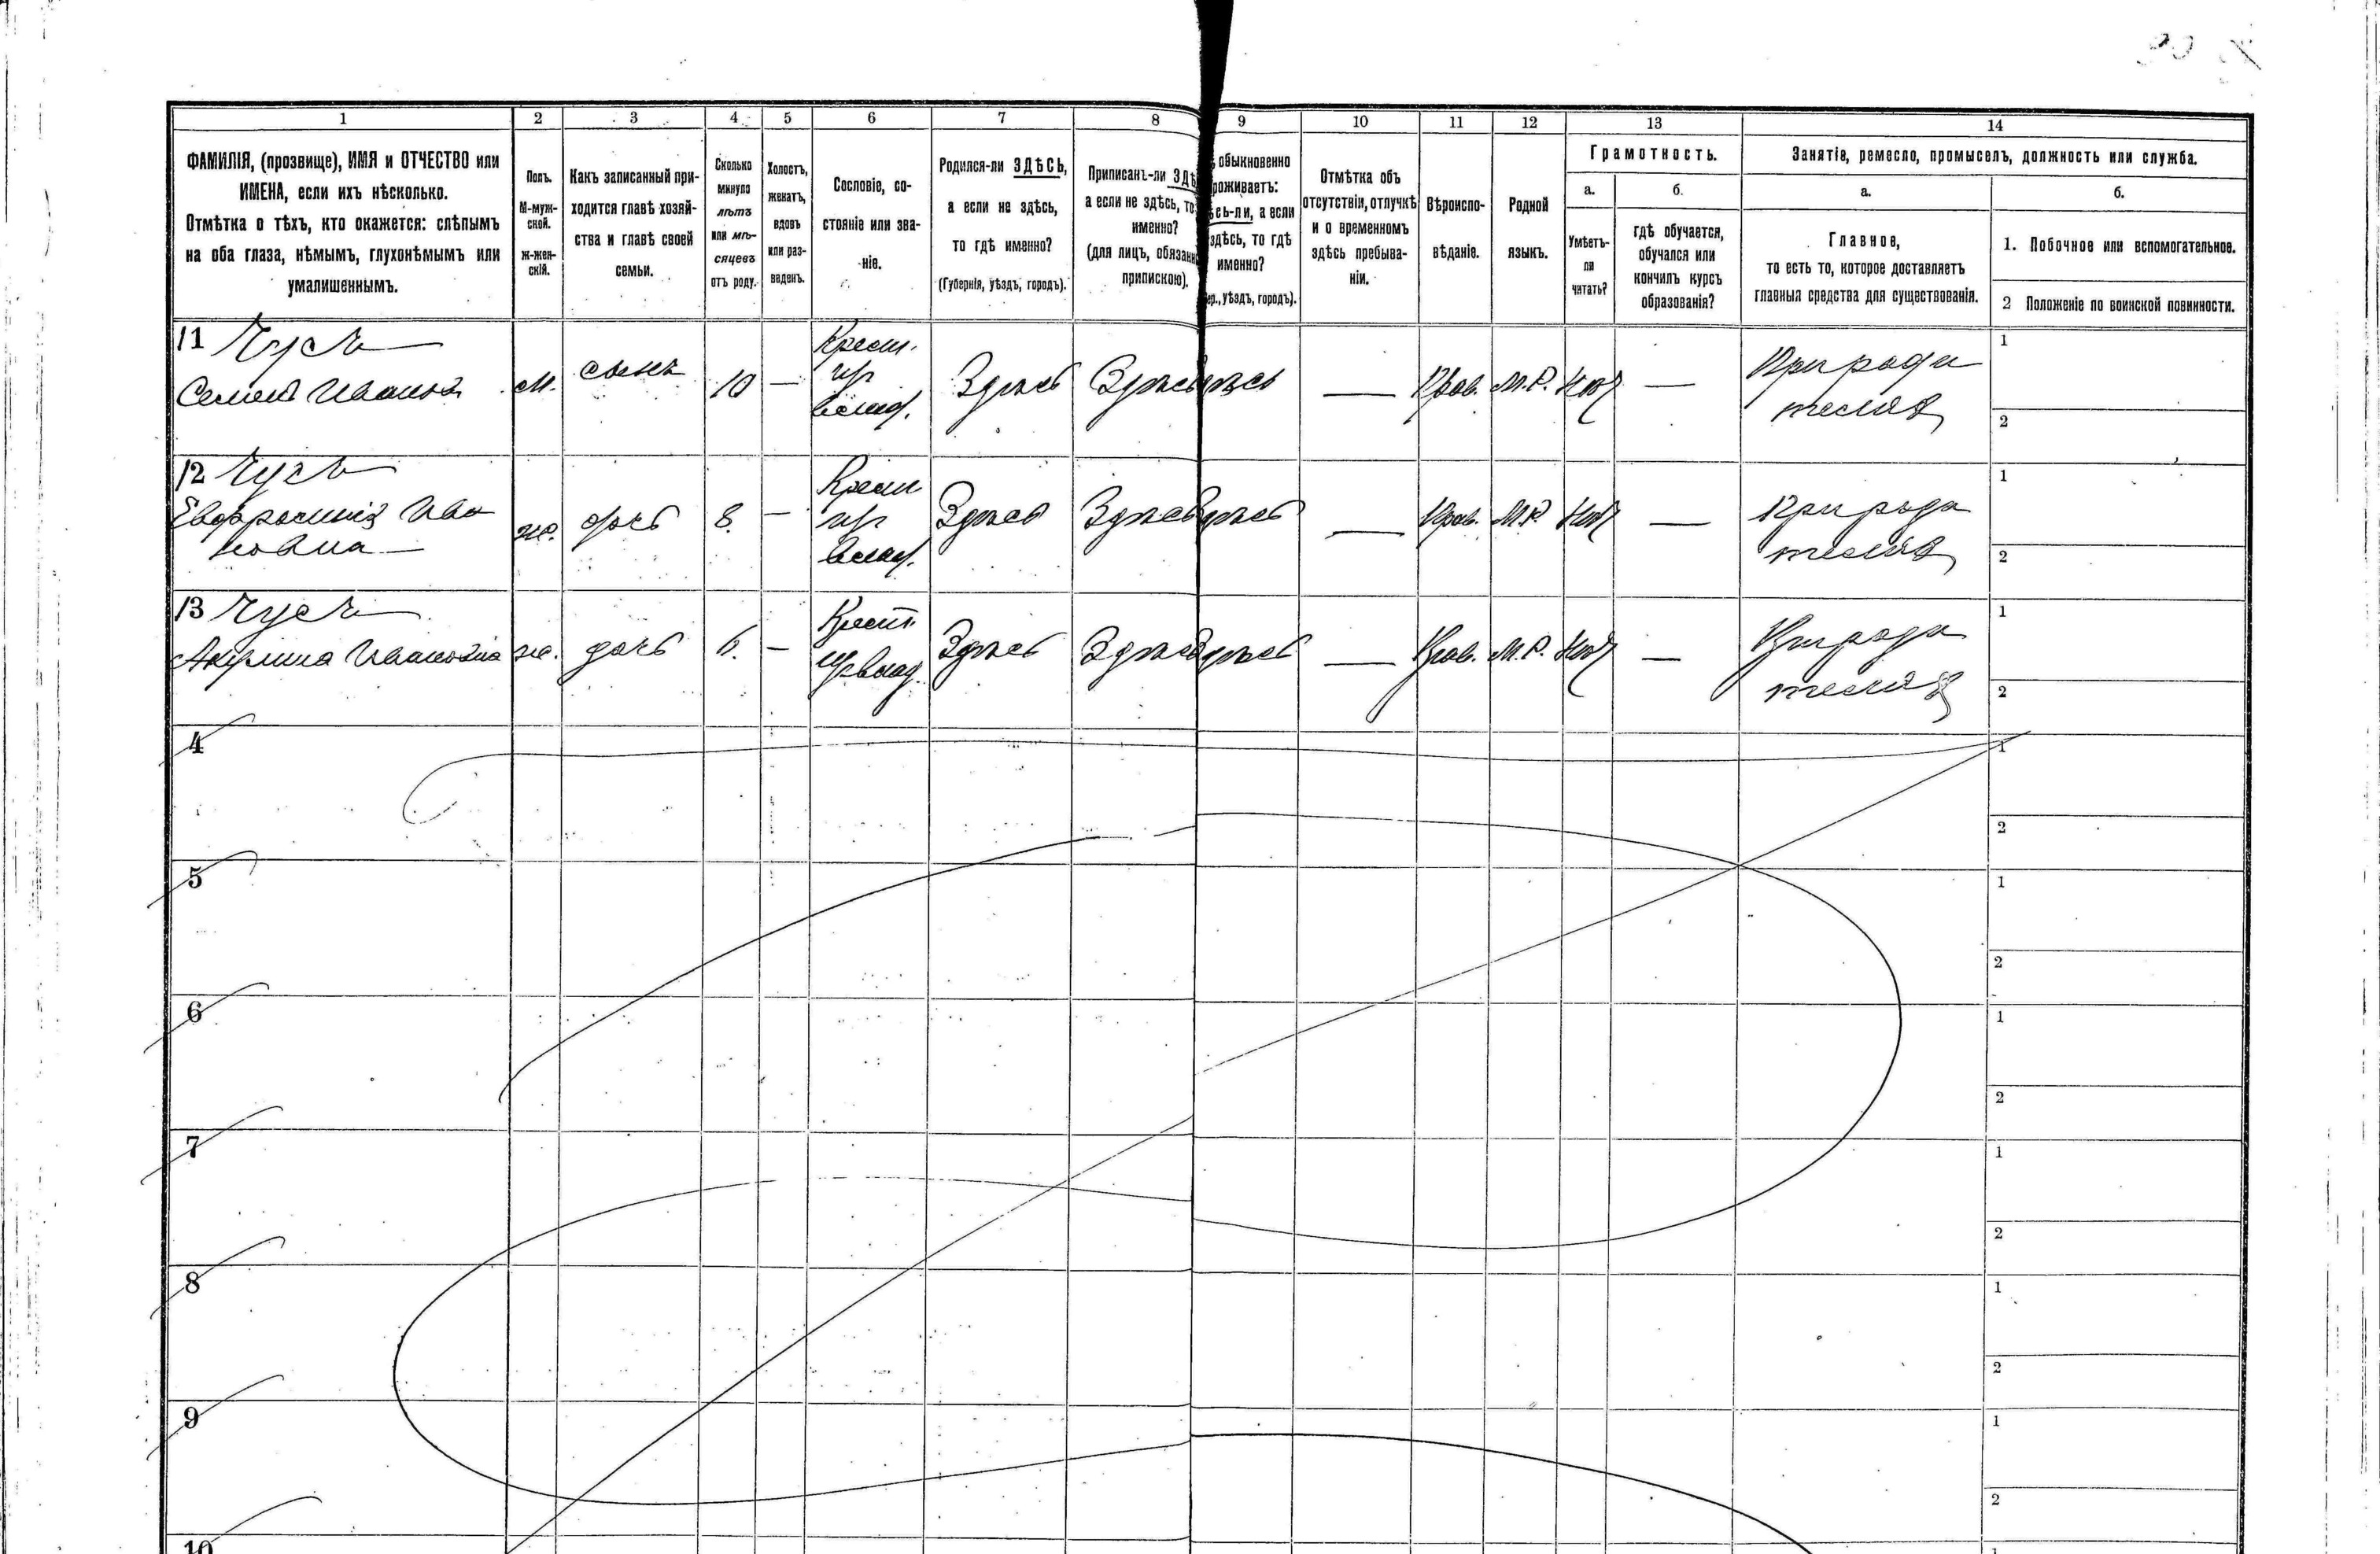 1 2 3 4 5 6 7 8 9 10 11 12 13 14
ФАМИЛІЯ, (прозвище), ИМЯ и ОТЧЕСТВО или
ИМЕНА, если ихъ нѣсколько.
Отмѣтка о тѣхъ, кто окажется: слѣпымъ
на оба глаза, нѣмымъ, глухонѣмымъ или
умалишеннымъ.
Полъ.
М-муж-
ской.
ж-жен-
скій.
Какъ записанный при-
ходится главѣ хозяй-
ства и главѣ своей
семьи.
Сколько
минуло
лѣтъ
или мѣ-
сяцевъ
отъ роду.
Холостъ,
женатъ,
вдовъ
или раз-
веденъ.
Сословіе, со-
стояніе или зва-
ніе.
Родился-ли ЗДѢСЬ,
а если не здѣсь,
то гдѣ именно?
(Губернія, уѣздъ, городъ).
Приписанъ-ли ЗДѢ
а если не здѣсь, то
именно?
(для лицъ, обязанн
припискою).
обыкновенно
роживаетъ:
сь-ли, а если
здѣсь, то гдѣ
именно?
ер., уѣздъ, городъ).
Отмѣтка объ
отсутствіи, отлучкѣ
и о временномъ
здѣсь пребыва-
ніи.
Вѣроиспо-
вѣданіе.
Родной
языкъ.
Грамотность.
а.
Умѣетъ-
ли
читать?
б.
гдѣ обучается,
обучался или
кончилъ курсъ
образованія?
Занятіе, ремесло, промыселъ, должность или служба.
а.
Главное,
то есть то, которое доставляетъ
главныя средства для существованія.
б.
1. Побочное или вспомогательное.
2 Положеніе по воинской повинности.
11 Чусь
Семенъ Ивановъ
м.
сынъ
10
—
Крест.
Здѣсь
Здѣсь
ѣсь
—
Прав.
М.Р.
Нѣтъ
—
При роди
теляхъ
1
2
12 Чусь
Евфросинія Ива
новна —
ж.
дочь
8.
—
Крест
Здѣсь
Здѣсь
дѣсь
—
Прав.
М.Р.
Нѣтъ
—
При роди
теляхъ
1
2
13 Чусь
Акулина Ивановна
ж.
дочь
6.
—
Крест.
Здѣсь
Здѣсь
дѣсь
—
Прав.
М.Р.
Нѣтъ
—
При роди
теляхъ
1
2
4
1
2
5
1
2
6
1
2
7
1
2
8
1
2
9
1
2
10
1